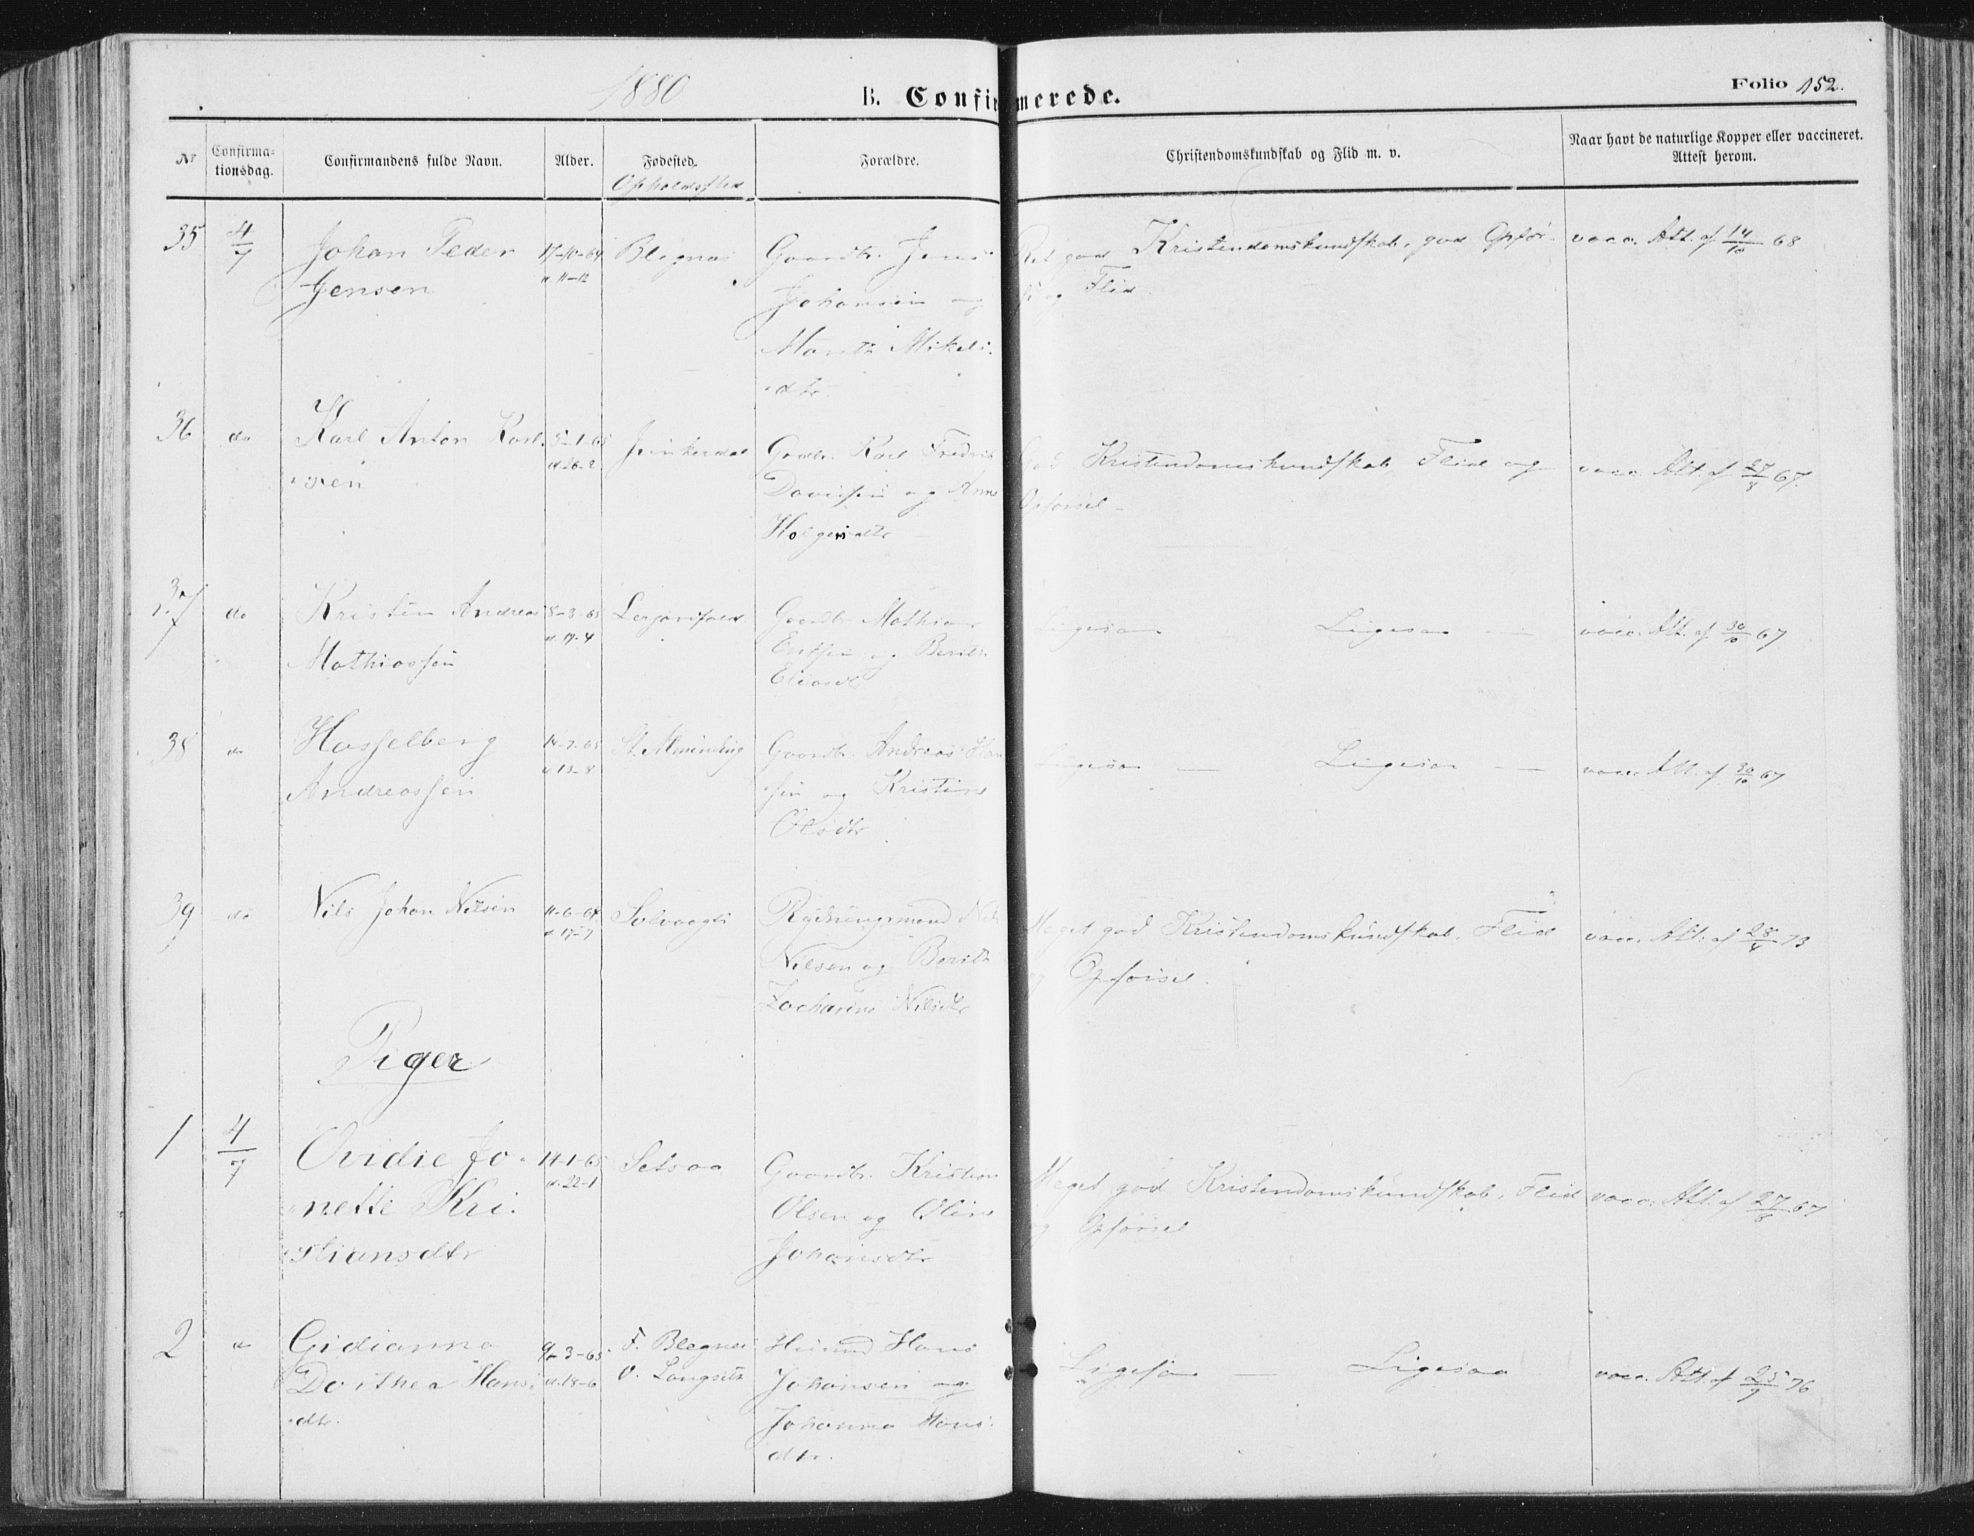 1880
B. Confirmerede.
Folio 152.
Nr
Confirma-
tionsdag.
Confirmandens fulde Navn.
Alder.
Fødested.
Opholdssted
Forældre.
Christendomskundskab og Flid m. v.
Naar havt de naturlige Kopper eller vaccineret.
Attest herom.
35 4/7 Johan Peder Blegnes Gaardbr. Jens Ret god Kristendomskundskab, god Opför- vacc. Att. af 14/10 68
Jensen d. 11-12 Johansen og sel og Flid.
Marith Mikels-
dtr.
36 do Karl Anton Karl- 5-1-65 Junkerdal Grdbr. Karl Fredrik God Kristendomskundskab, Flid og vacc. Att. af 27/8 67.
sen d. 26-2 Davidsen og Anne Opförsel
Holgersdtr
37 do Kristen Andreas 8-3-65 Gaardbr. Mathias Ligesaa — Ligesaa — vacc. Att. af 30/10 67
Mathiassen d. 17-4 og Berith
Eliasd.
38 do Hasselberg St. Alminding Gaardbr. Andreas Han- Ligesaa — Ligesaa — vacc. Att. af 30/10 67
Andreassen d. 13-8 sen og Kristine
Olsdtr
39 do Nils Johan Nilsen 11-6-64 Solvaagli Rydningsmand Nils Meget god Kristendomskundskab, Flid vacc. Att. af 28/8 73
d. 17-7 Nilsen og Berith og Opförsel.
Zacharine Nilsdtr
Piger
1 4/7 Ovidie Jo- 14-1-65 Setsaa Gaardbr. Kristian Meget god Kristendomskundskab, Flid vacc. Att. af 27/8 67
nette Kri- d. 22-1 Olsen og Oline og Opförsel
stiansdtr Johansdtr
2 do Gidianna 9-3-65 F. Blegnes Husmd Hans Ligesaa — Ligesaa vacc. Att. af 25/9 76
Dorthea Hans- d. 18-6 O. Langset Johansen og
dtr. Johanna Hans-
dtr.